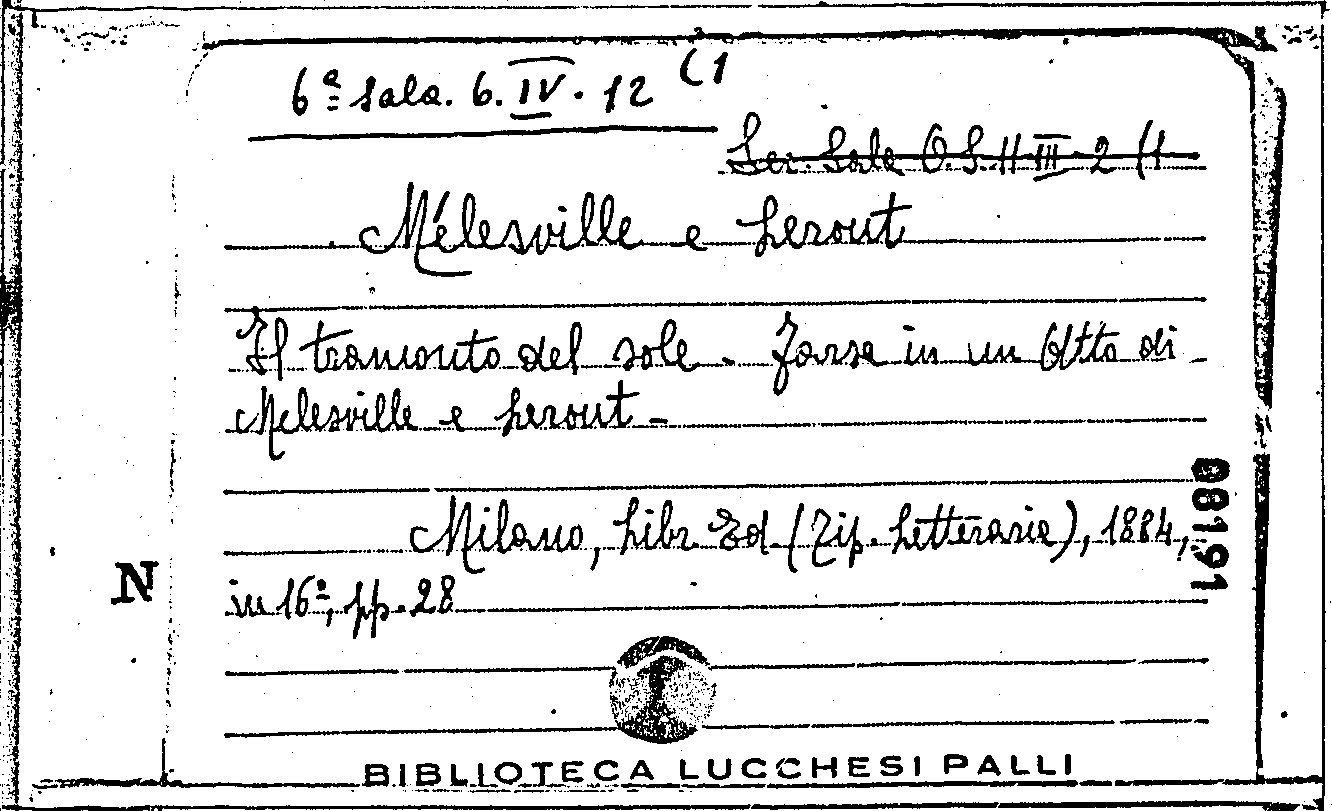 6ª Sala. 6. IV. 12 (1
Sez. Sala O.S. 11 III 2 (1
Mélesville e Lerout
Il tramonto del sole - Farsa in un Atto di
Melesville e Lerout -
Milano, Libr. Ed. (Tip. Letteraria), 1884,
in 16º, pp. 28
98191
N
BIBLIOTECA LUCCHESI PALLI